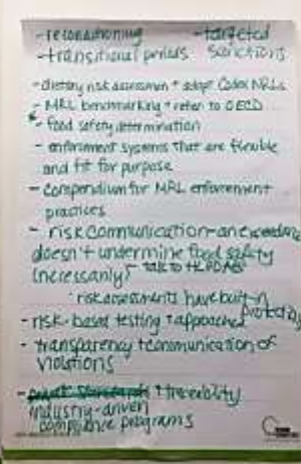 - reconditioning - targeted
- transitional periods sanctions
- dietary risk assessment + adopt Codex MRLs
- MRL benchmarking + refer to OECD
- food safety determination
- enforcement systems that are flexible
and fit for purpose
- compendium for MRL enforcement
practices
- risk communication - an exceedance
doesn't undermine food safety
(necessarily) - talk to
: risk assessments have built-in
protections
- risk-based testing + approaches
- transparency + communication of
violations
- private standards + traceability
industry-driven
compliance programs